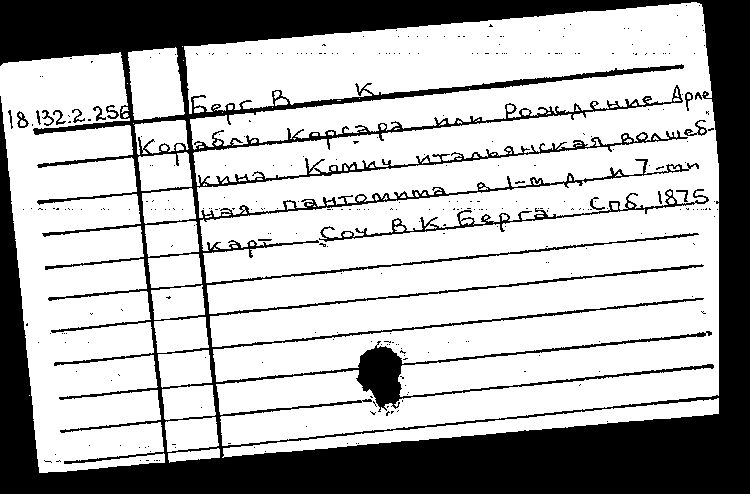 18.132.2.256 Берг, В. К.
Корабль Корсара или Рождение Арле
кина. Комич. итальянская, волшеб-
ная пантомима в 1-м д. и 7-ми
карт. Соч. В.К. Берга. Спб., 1875.